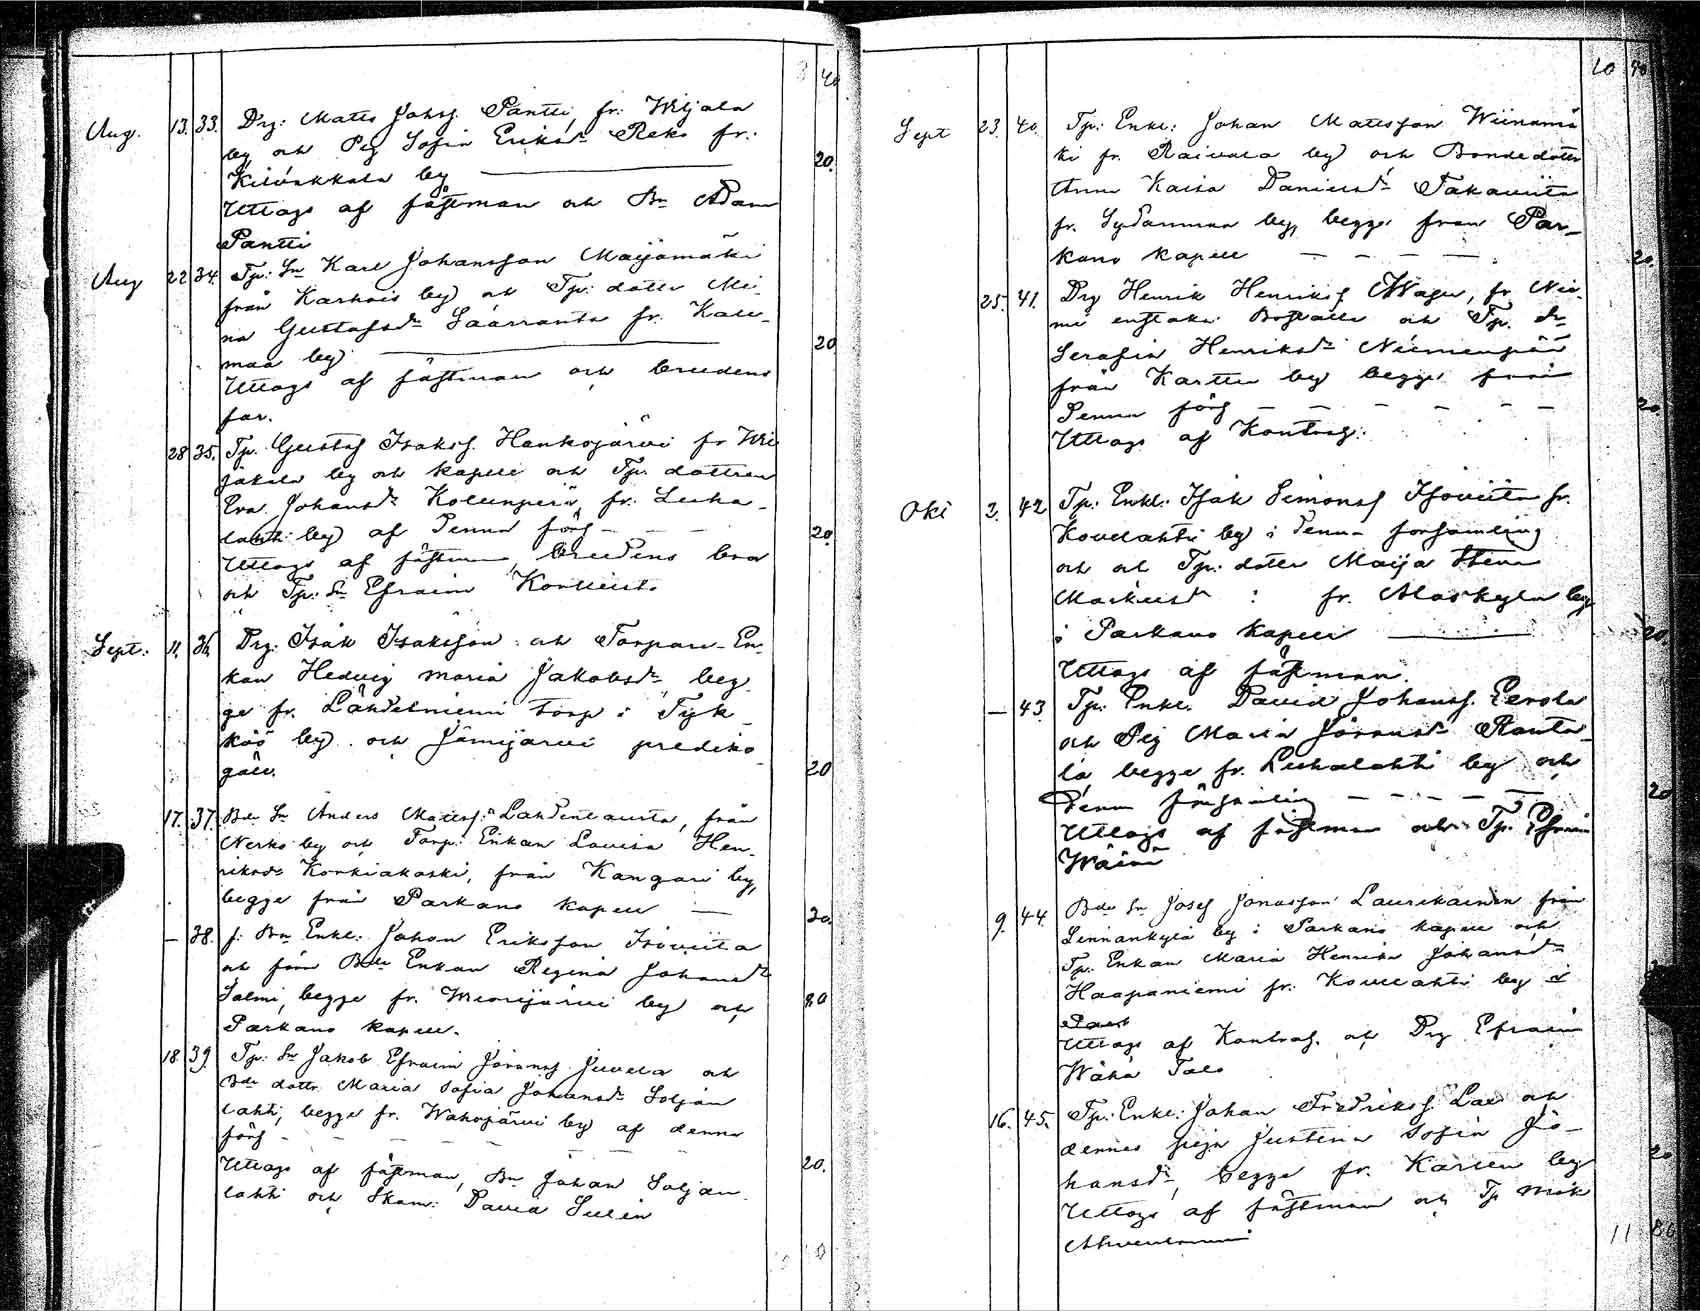 40
Aug. 13. 33. Drg: Matts Johss. Pantti, fr: Wiljala
by och Pig Sofia Eriksdr Reko fr:
Kilvakkala by — 20.
Uttogs af fästman och Bn Adam
Pantti
Aug 22 34. Tp: Sn Karl Johansson Maijämäki
från Karhois by och Tp: dotter Mi-
na Gustafsdr Säärranta fr. Kali-
maa by — 20
Uttogs af fästman och brudens
far.
28 35. Tp. Gustaf Isaks. Hankojärvi fr
by och kapell och Tp. dottren
Eva Johansdr fr. Luha-
lahti by af denna förs - - 20.
Uttogs af fästman, brudens bror
och Tp: Sn Efraim
Sept: 11. 36. Drg: Isak Isaksson och Torpare-En-
kan Hedvig Maria Jakobsdr beg-
ge fr. Lähdeniemi torp i Tyk-
köö by och Jämijärvi prediko-
gäll. 20
17. 37. Bde Sn Anders Mattss. Lahdentausta, från
Nerko by och Torp: Enkan Lovisa Hen-
riksdr Korkiakoski, från Kangari by,
begge från Parkano kapell — 20.
— 38. f. Bn Enkl: Johan Eriksson Isoviita
och förra Bde Enkan Regina Johansdr
Salmi, begge fr. by och 80
Parkano kapell.
18 39. Tp: Sn Jakob Efraim Juvela och
Bde dottr Maria Sofia Johansdr Soljan
lahti, begge fr. Wahojärvi by af denna
förs - - - - -
Uttogs af fästman, Bn Johan Soljan- 20.
lahti och Skom: David Sulin
10 40
Sept 23. 40. Tp: Enkl: Johan Mattsson Wiinamä
ki fr. Raivala by och Bondedotter
Anna Kaisa Danielsdr Takaviita
fr. Sydänmaa by, begge från Par-
kano kapell — — — — 20.
25. 41. Drg Henrik Henrikss. fr. Nie-
mi enstaka Boställe och Tp. dr
Serafia Henriksdr Niemenpää
från Karttu by begge från
Denna förs — — — — — 20.
Uttogs af Kontrah:
Okt 2. 42 Tp: Enkl: Isak Simonss Isoviita fr.
Kovelahti by i Denna forsamling
och och Tp: dotter Maija Stina
fr. Alaskylä by
i Parkano kapell — 20.
Uttogs af fästman.
— 43 Tp: Enkl. David Johanss. Eerola
och Pig Maria Ranta-
la begge fr. Luhalahti by och
Denna församling — — — — — 20
Uttogs af fästman och Tp. Efraim
9. 44. Bde Sn Josef Jonasson Laurikainen från
Linnankylä by i Parkano kapell och
Tp: Enkan Maria Henrika Johansdr
Haapaniemi fr. Kovelahti by i
Uttogs af Kontrah. och Drg Efraim
Wähä Talo
16. 45. Tp: Enkl: Johan Fredrikss. och
dennes piga Justina Sofia Jo-
hansdr, begge fr. Karttu by 20
Uttogs af fästman och Tp
11 80